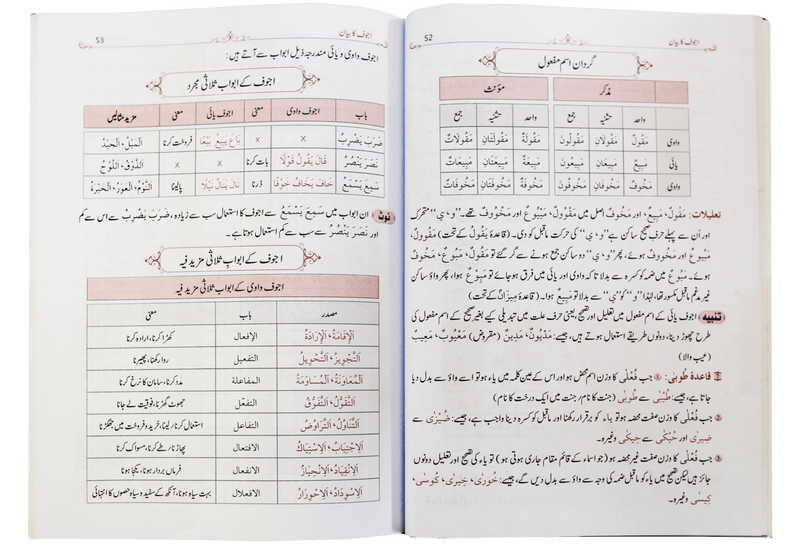 اجوف کا بیان
52
گردان اسم مفعول
مذکر مؤنث
واحد تثنیہ جمع واحد تثنیہ جمع
واوی مَقُولٌ مَقُولَانِ مَقُولُونَ مَقُولَةٌ مَقُولَتَانِ مَقُولَاتٌ
یائی مَبِيعٌ مَبِيعَانِ مَبِيعُونَ مَبِيعَةٌ مَبِيعَتَانِ مَبِيعَاتٌ
واوی مَخُوفٌ مَخُوفَانِ مَخُوفُونَ مَخُوفَةٌ مَخُوفَتَانِ مَخُوفَاتٌ
تعلیلات: مَقُولٌ، مَبِيعٌ، اور مَخُوفٌ اصل میں مَقْوُولٌ، مَبْيُوعٌ اور مَخْوُوفٌ تھے۔ ”و، ي“ متحرک
اور اُن سے پہلے حرف صحیح ساکن ہے ”و، ي“ کی حرکت ماقبل کو دی۔ (قاعدۂ يَقُولُ کے تحت) مَقُوولٌ،
مَبُيوعٌ اور مَخُووفٌ ہوئے، پھر ”و، ي“ دو ساکن جمع ہونے سے گر گئے تو مَقُولٌ، مَبُوعٌ، مَخُوفٌ
ہوئے۔ مَبُوعٌ میں ضمہ کو کسرہ سے بدلا تاکہ واوی اور یائی میں فرق ہو جائے تو مَبِوْعٌ ہوا، پھر واؤ ساکن
غیر مدغم ماقبل مکسور تھا، لہٰذا ”و“ کو ”ي“ سے بدلا تو مَبِيعٌ ہوا۔ (قاعدۂ مِيزَانٌ کے تحت)
تنبیہ اجوف یائی کے اسم مفعول میں تعلیل اور تصحیح، یعنی حرف علت میں تبدیلی کیے بغیر صحیح کے اسم مفعول کی
طرح چھوڑ دینا، دونوں طریقے استعمال ہوتے ہیں، جیسے: مَدْيُونٌ، مَدِينٌ (مقروض) مَعْيُوبٌ، مَعِيبٌ
(عیب والا)
قاعدۂ طُوبٰی: ① جب فُعْلٰی کا وزن اسم محض ہو اور اس کے عین کلمہ میں یاء ہو تو اسے واؤ سے بدل دیا
جاتا ہے، جیسے: طُيْبٰی سے طُوبٰی (جنت کا نام / جنت میں ایک درخت کا نام)
② جب فُعْلٰی کا وزن صفت محضہ ہو تو یاء کو برقرار رکھنا اور ماقبل کو کسرہ دینا واجب ہے، جیسے: ضُيْزٰی سے
ضِيزٰی اور حُيْكٰی سے حِيكٰی وغیرہ۔
③ جب فُعْلٰی کا وزن صفت غیر محضہ ہو (جو اسماء کے قائم مقام جاری ہوتی ہو) تو یاء کی تصحیح اور تعلیل دونوں
جائز ہیں لیکن تصحیح میں یاء کو ماقبل ضمہ کی وجہ سے واؤ سے بدل دیں گے، جیسے: خُورٰی، خِيرٰی، كُوسٰی،
كِيسٰی وغیرہ۔
اجوف کا بیان
53
اجوف واوی و یائی مندرجہ ذیل ابواب سے آتے ہیں:
اجوف کے ابواب ثلاثی مجرد
باب اجوف واوی معنی اجوف یائی معنی مزید مثالیں
ضَرَبَ يَضْرِبُ x x بَاعَ يَبِيعُ بَيْعًا فروخت کرنا اَلْمَيْلُ، اَلْحَيْدُ
نَصَرَ يَنْصُرُ قَالَ يَقُولُ قَوْلًا بات کرنا x x اَلذَّوْقُ، اَللَّوْحُ
سَمِعَ يَسْمَعُ خَافَ يَخَافُ خَوْفًا ڈرنا نَالَ يَنَالُ نَيْلًا پالینا اَلنَّوْمُ، اَلْعَوَرُ، اَلْحَيْرَةُ
نوٹ ان ابواب میں سَمِعَ يَسْمَعُ سے اجوف کا استعمال سب سے زیادہ، ضَرَبَ يَضْرِبُ سے اس سے کم
اور نَصَرَ يَنْصُرُ سے سب سے کم استعمال ہوتا ہے۔
اجوف کے ابوابِ ثلاثی مزید فیہ
اجوف واوی کے ابواب ثلاثی مزید فیہ
مصدر باب معنی
اَلْإِقَامَةُ، اَلْإِرَادَةُ الإفعال کھڑا کرنا، ارادہ کرنا
اَلتَّجْوِيزُ، اَلتَّحْوِيلُ التفعیل روا رکھنا، پھیرنا
اَلْمُعَاوَنَةُ، اَلْمُسَاوَمَةُ المفاعلة مدد کرنا، سامان کا نرخ کرنا
اَلتَّقَوُّلُ، اَلتَّفَوُّقُ التفعّل جھوٹ گھڑنا، فوقیت لے جانا
اَلتَّنَاوُلُ، اَلتَّرَاوُضُ التفاعل استعمال کرنا / لینا، خرید و فروخت میں جھگڑنا
اَلْاِجْتِيَابُ، اَلْاِسْتِيَاكُ الافتعال پھاڑنا / طے کرنا، مسواک کرنا
اَلْاِنْقِيَادُ، اَلْاِنْحِيَازُ الانفعال فرماں بردار ہونا، یکجا ہونا
اَلْاِسْوِدَادُ، اَلْاِحْوِرَارُ الافعلال بہت سیاہ ہونا، آنکھ کے سفید و سیاہ حصوں کا انتہائی